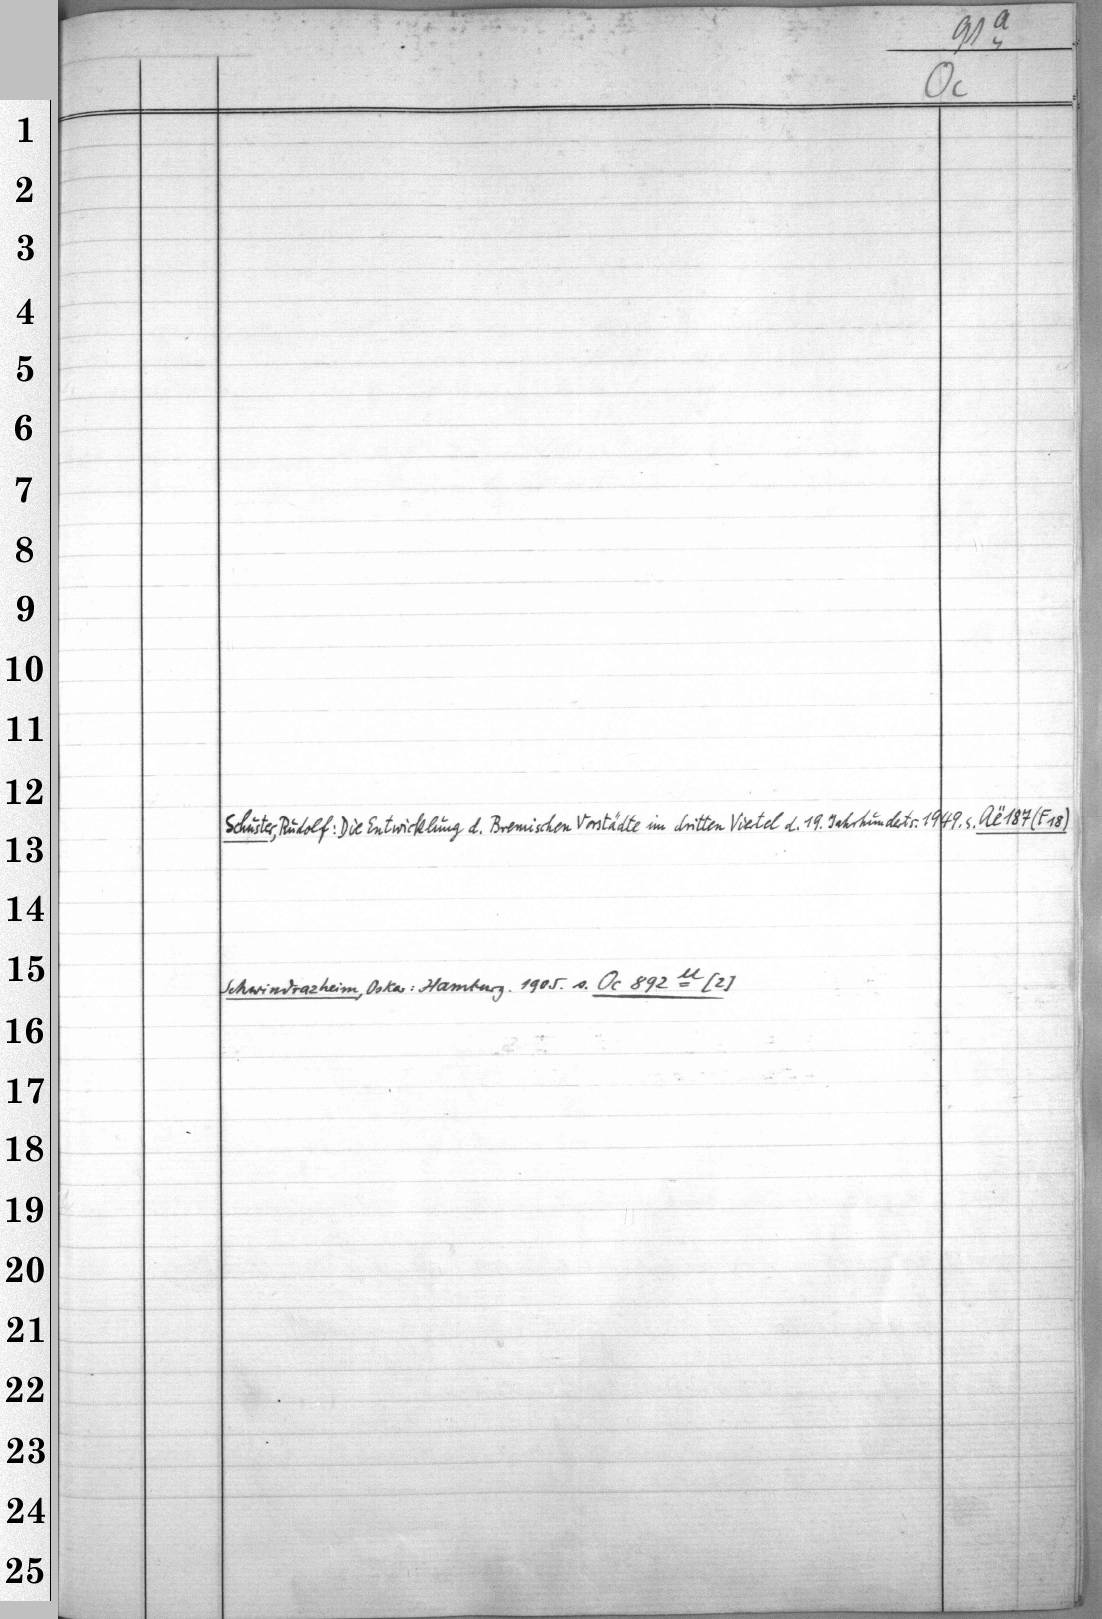 91a
Oc
1
2
3
4
5
6
7
8
9
10
11
12
Schuster, Rudolf: Die Entwicklung d. Bremischen Vorstädte im dritten Viertel d. 19. Jahrhunderts. 1949. s. Aë 187 (F 18)
13
14
15
Schwindrazheim, Oskar: Hamburg. 1905. s. Oc 892 u [2]
16
17
18
19
20
21
22
23
24
25